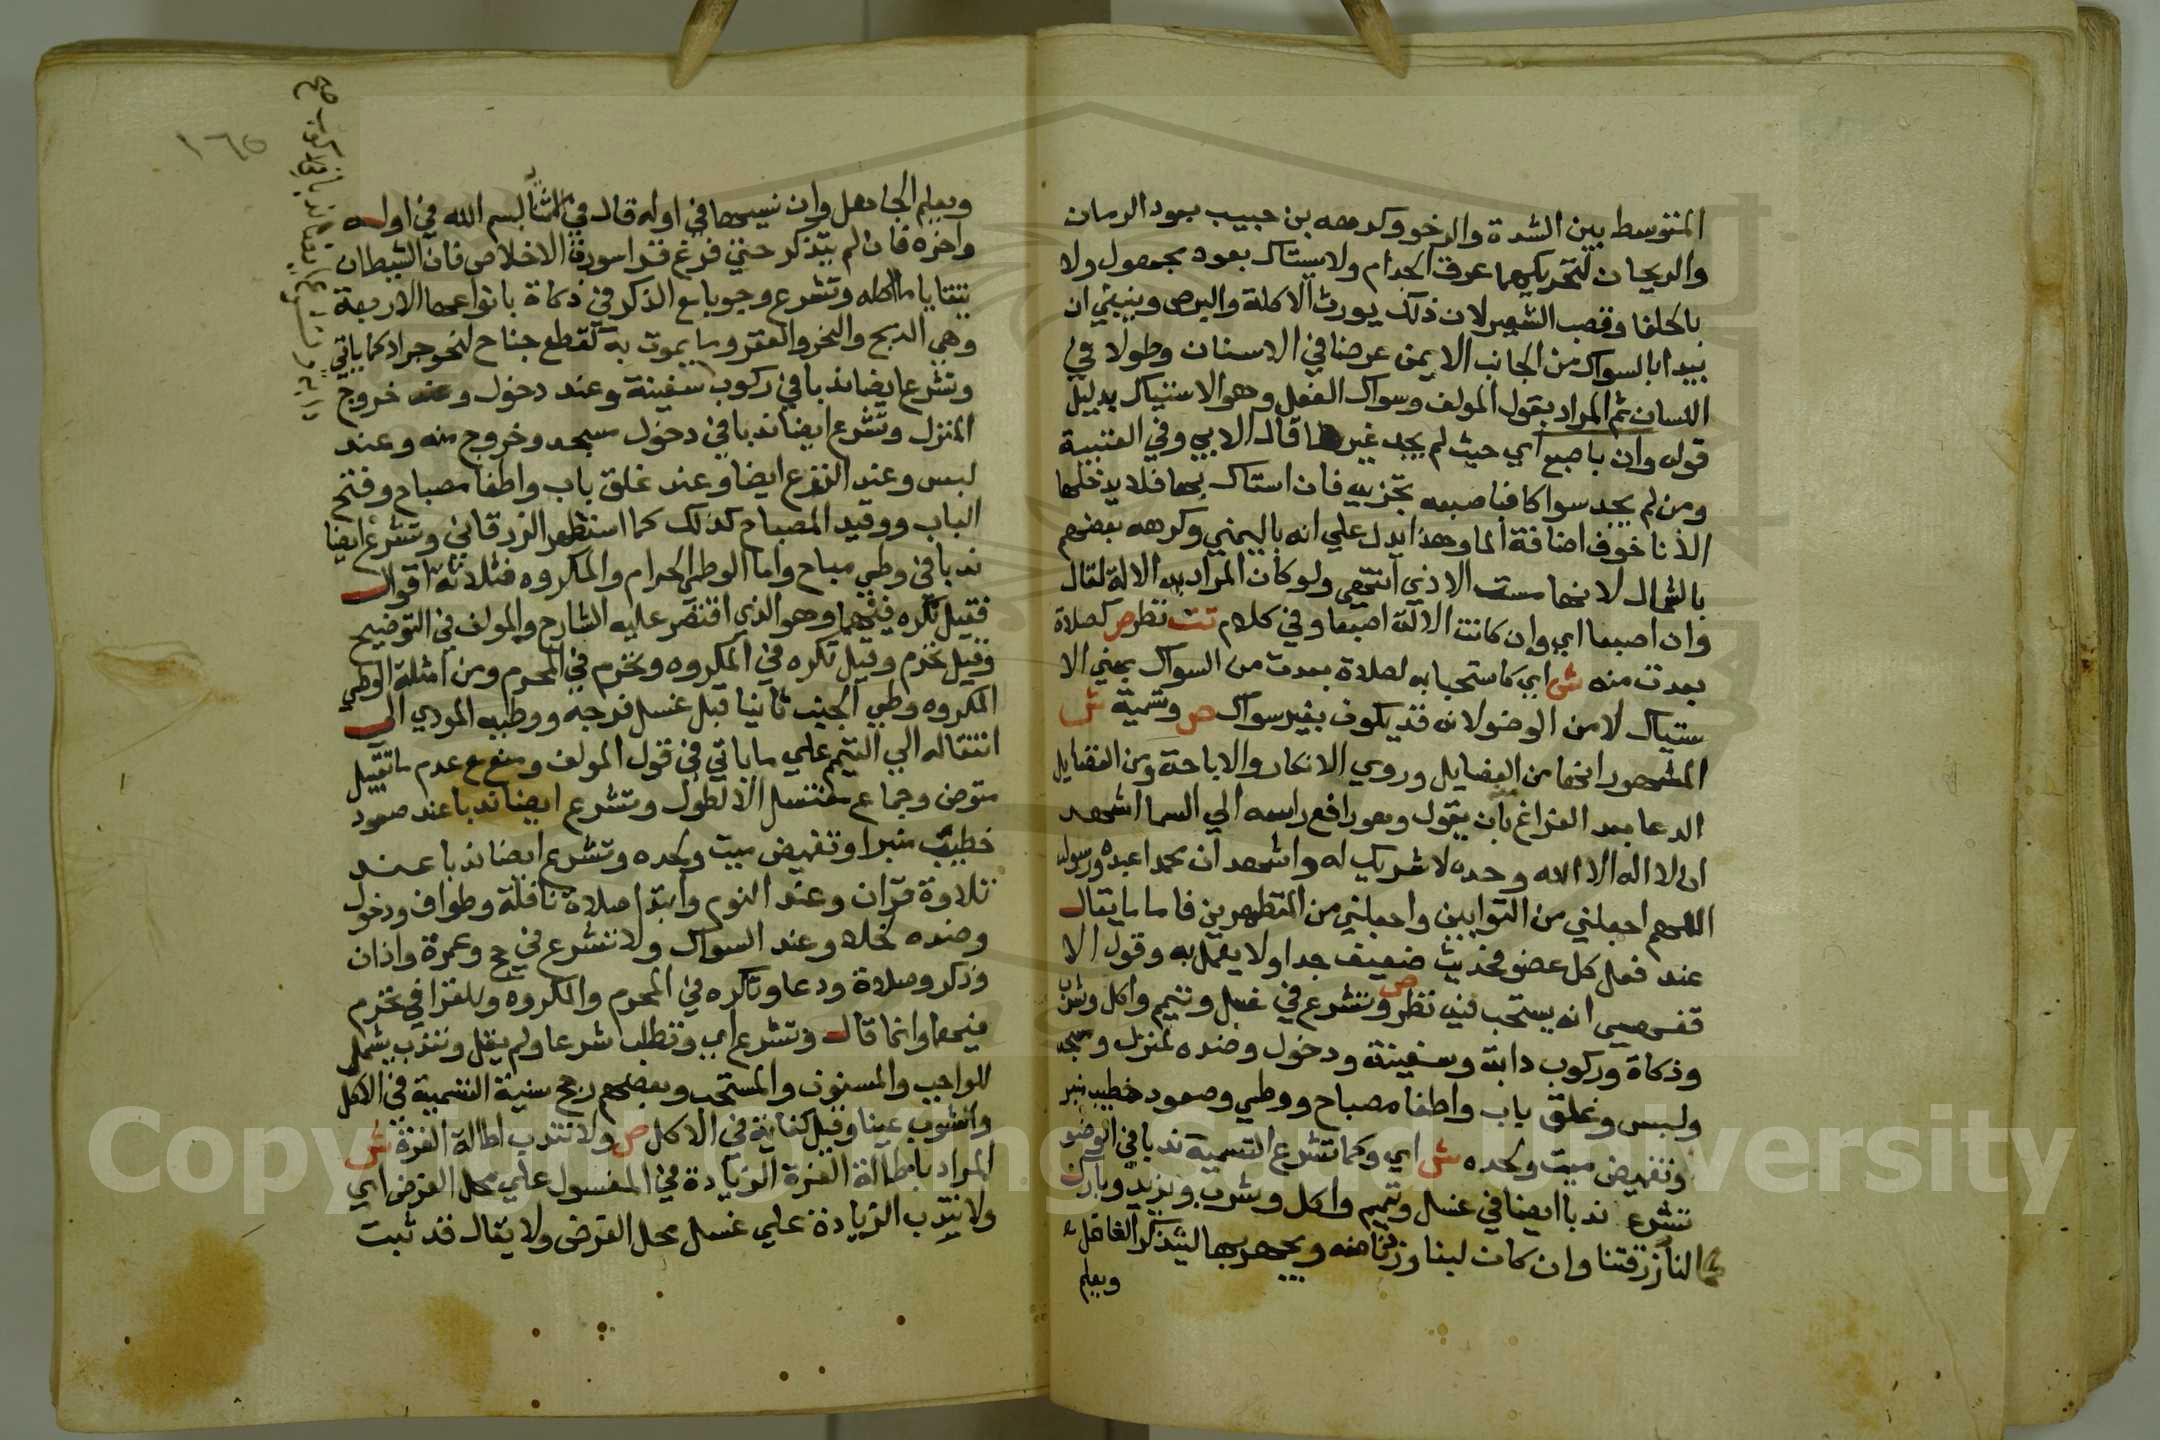 المتوسط بين الشدة والرخو وكرهه بن حبيب بعود الرمان
والريحان لتحريكهما عرق الجدام ولا يستاك بعود مجهول ولا
بالحلفا وقصب الشعير لان ذلك يورث الاكلة والبرص وينبغي ان
يبدا بالسواك من الجانب الايمن عرضا في الاسنان وطولا في
اللسان ثم المراد بقول المولف وسواك الفعل وهو الاستياك بدليل
قوله وان باصبع اي حيث لم يجد غيرها قال الابي وفي العتبية
ومن لم يجد سواكا فباصبعه تجزيه فان استاك بها فلا يدخلها
الانا خوف اضافة الما وهذا يدل علي انه باليمني وكرهه بعضهم
بالشمال لانها مست الاذي انتهي ولو كان المراد به الالة لقال
وان اصبعا اي وان كانت الالة اصبعا وفي كلام تت نظر ص كصلاة
بعدت منه ش اي كاستحبابه لصلاة بعدت من السواك بمعني الا
ستياك لا من الوضو لانه قد يكون بغير سواك ص وتسمية ش
المشهور انها من الفضايل وروي الانكار والاباحة ومن الفضايل
الدعا بعد الفراغ بان يقول وهو رافع راسه الي السما اشهد
ان لا اله الا الله وحده لا شريك له واشهد ان محمدا عبده ورسوله
اللهم اجعلني من التوابين واجعلني من المتطهرين فاما ما يقال
عند فعل كل عضو فحديث ضعيف جدا ولا يعمل به وقول الا
قفهسي انه يستحب فيه نظر ص وتشرع في غسل وتيمم واكل وشرب
وذكاة وركوب دابة وسفينة ودخول وضده لمنزل ومسجد
ولبس وغلق باب واطفا مصباح ووطي وصعود خطيب منبر
وتغميض ميت ولحده ش اي وكما تشرع التسمية ندبا في الوضو
تشرع ندبا ايضا في غسل وتيمم واكل وشرب ويزيد وبارك
لنا رزقتنا وان كان لبنا وزدنا منه ويجهر بها ليتذكر الغافل
ويعلم
ويعلم الجاهل وان نسيها في اوله قال في الاثنا بسم الله في اوله
واخره فان لم يتذكر حتي فرغ قرا سورة الاخلاص فان الشيطان
يتقايا ما اكله وتشرع وجوبا مع الذكر في ذكاة بانواعها الاربعة
وهي الذبح والنحر والعقر وما يموت به كقطع جناح لنحو جراد كما ياتي
وتشرع ايضا ندبا في ركوب سفينة وعند دخول وعند خروج
المنزل وتشرع ايضا ندبا في دخول مسجد وخروج منه وعند
لبس وعند النزع ايضا وعند غلق باب واطفا مصباح وفتح
الباب ووقيد المصباح كذلك كما استظهر الزرقاني وتشرع ايضا
ندبا في وطي مباح واما الوطي الحرام والمكروه فثلاثة اقوال
فقيل تكره فيهما وهو الذي اقتصر عليه الشارح والمولف في التوضيح
وقيل تحرم وقيل تكره في المكروه وتحرم في المحرم ومن امثلة الوطي
المكروه وطي الجنب ثانيا قبل غسل فرجه ووطيه المودي الي
انتقاله الي التيمم علي ما ياتي في قول المولف ومنع مع عدم ما تقبيل
متوضي وجماع مغتسل الا لطول وتشرع ايضا ندبا عند صعود
خطيب منبرا وتغميض ميت ولحده وتشرع ايضا ندبا عند
تلاوة قرآن وعند النوم وابتدا صلاة نافلة وطواف ودخول
وضده لخلا وعند السواك ولا تشرع في حج وعمرة واذان
وذكر وصلاة ودعا وتكره في المحرم والمكروه وللقرافي تحرم
فيهما وانما قال وتشرع اي وتطلب شرعا ولم يقل وتندب يشمل
للواجب والمسنون والمستحب وبعضهم رجح سنية التسمية في الاكل
والشرب عينا وقيل كفاية في الاكل ص ولا تندب اطالة الغرة ش
المراد باطالة الغرة الزيادة في المغسول علي محل الفرض اي
ولا يندب الزيادة علي غسل محل الفرض ولا يقال قد ثبت
١٦٥